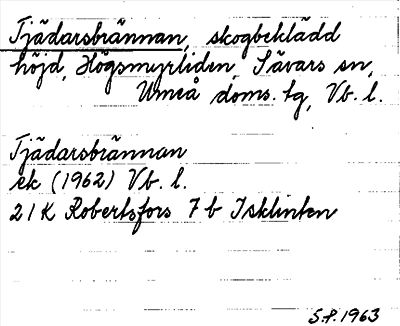 Tjädarsbrännan, skogbeklädd
höjd, Högsmyrliden, Sävars sn,
Umeå doms. tg, Vb. l.
Tjädarsbrännan
ek (1962) Vb. l.
21K Robertsfors 7 b Isklinten
S.P. 1963